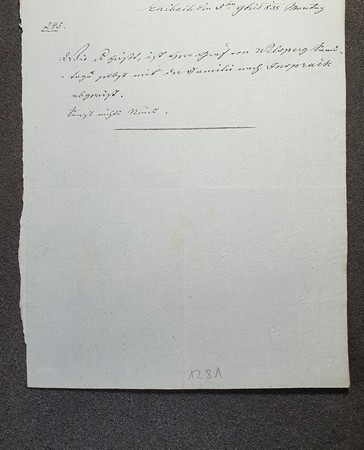 Laibach den 5ten 9bris 838 Montag
245.
Wie es heißt, ist Herr Graf von Welsperg Sams-
tags selbst mit der Familie nach Inspruck
abgereist.
Sonst nichts Neues.
1281